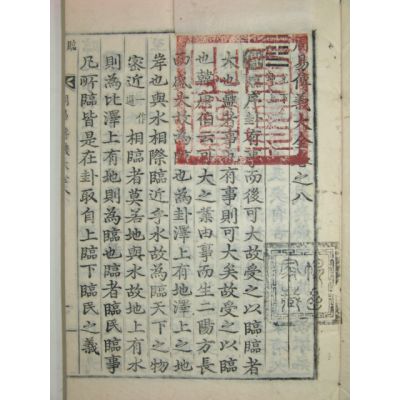 周易傳義大全卷之八
序卦有事而後可大故受之以臨臨者
大也蠱者事也有事則可大矣故受之以臨
也韓康伯云可大之業由事而生二陽方長
而盛大故為臨也為卦澤上有地澤上之地
岸也與水相際臨近乎水故為臨天下之物
密近相臨者莫若地與水故地上有水
則為比澤上有地則為臨也臨者臨民臨事
凡所臨皆是在卦取自上臨下臨民之義
臨